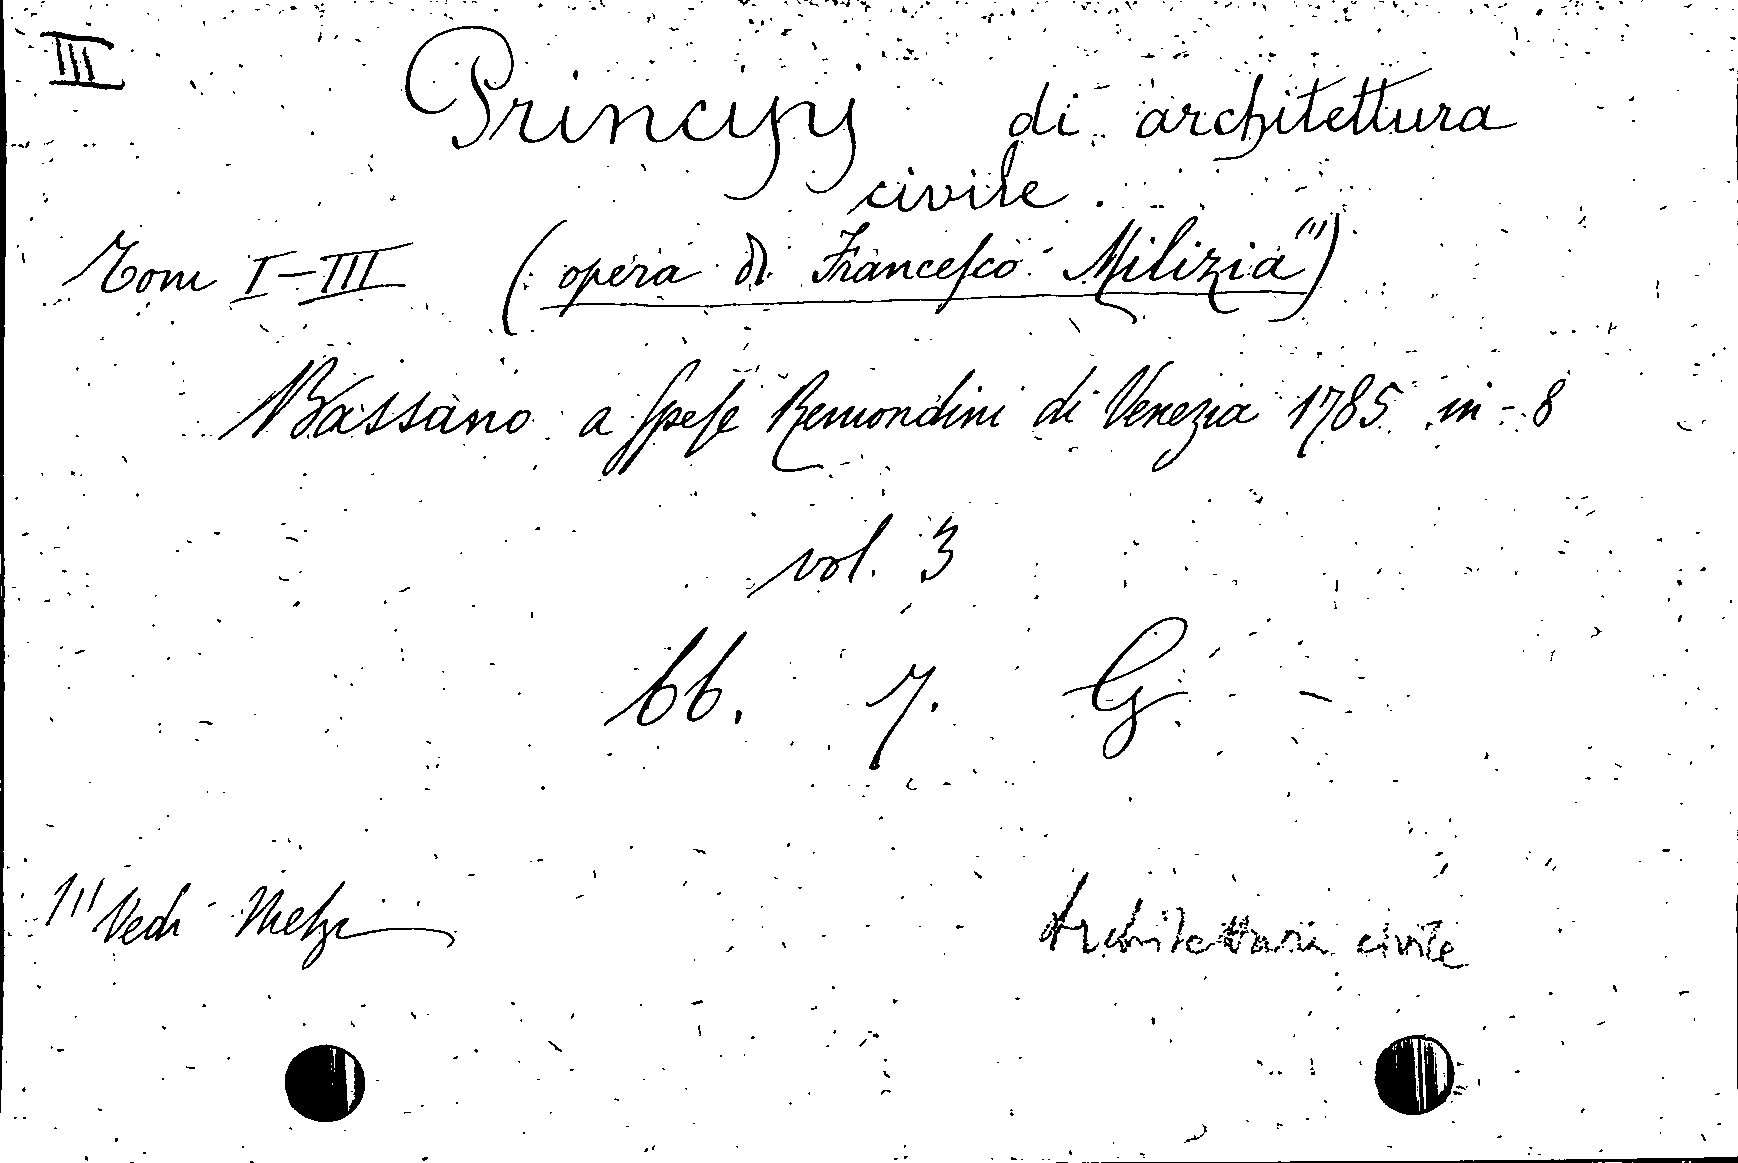 III
Principj di architettura
civile.
Tom I-III (opera di Francesco Milizia (1))
Bassano a spese Remondini di Venezia 1785 in-8
vol. 3
bb. 7. G
(1) Vedi Melzi
Architettura civile